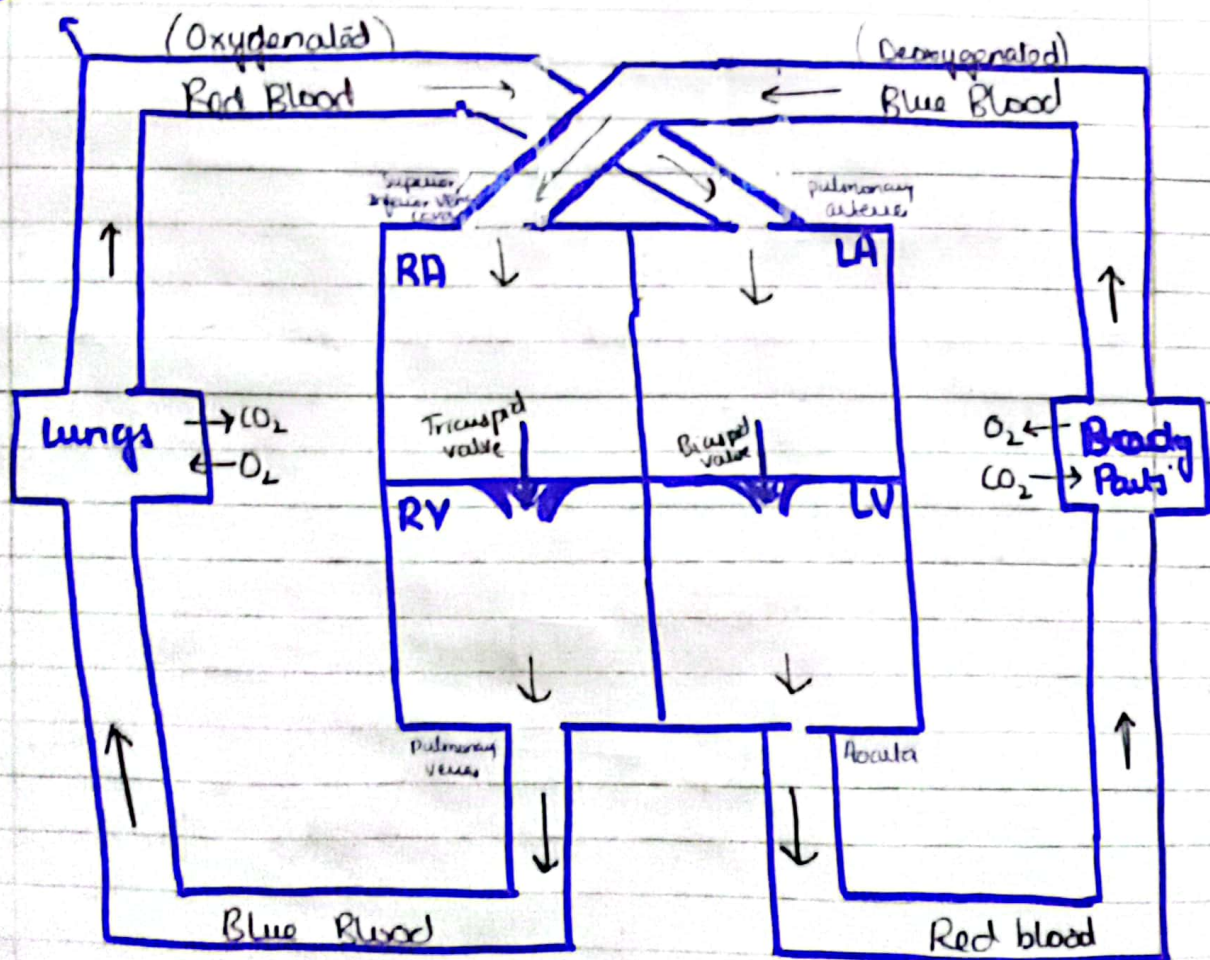 (Oxygenated)
Red Blood
(Deoxygenated)
Blue Blood
Superior
Inferior Vena
cava
pulmonary
arteries
RA
LA
Lungs
CO₂
O₂
Tricuspid
valve
Bicuspid
valve
O₂
CO₂
Boady
Parts
RV
LV
pulmonary
veins
Aoarta
Blue Blood
Red blood